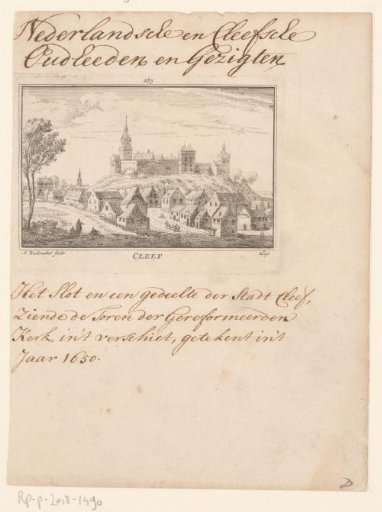 Nederlandsche en Cleefsche
Oudheeden en Gezigten
283
A. Rademaker fecit
CLEEF
1650
Het Slot en een gedeelte der Stadt Cleef,
Ziende de Toren der Gereformeerden
Kerk in't verschiet, getekent in't
Jaar 1650.
RP-P-2018-1490